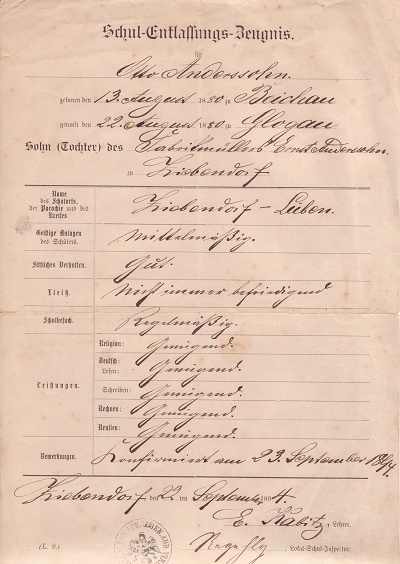 Schul-Entlassungs-Zeugnis.
für
Otto Anderssohn.
geboren den 13. August 1880 zu Beichau
getauft den 22. August 1880 zu Glogau
Sohn (Tochter) des Fabrikmüllers Ernst Anderssohn.
zu Ziebendorf
Name des Schulorts, der Parochie und des Kreises
Ziebendorf – Lüben.
Geistige Anlagen des Schülers.
Mittelmäßig.
Sittliches Verhalten.
Gut.
Fleiß.
Nicht immer befriedigend
Schulbesuch.
Regelmäßig.
Leistungen.
Religion: Genügend.
Deutsch:
Lesen: Genügend.
Schreiben: Genügend.
Rechnen: Genügend.
Realien: Genügend.
Bemerkungen.
Konfirmiert am 23. September 1894.
Ziebendorf, den 22. im September 1894.
E. Kabitz, Lehrer.
(L. S.)
, Lokal-Schul-Inspector.